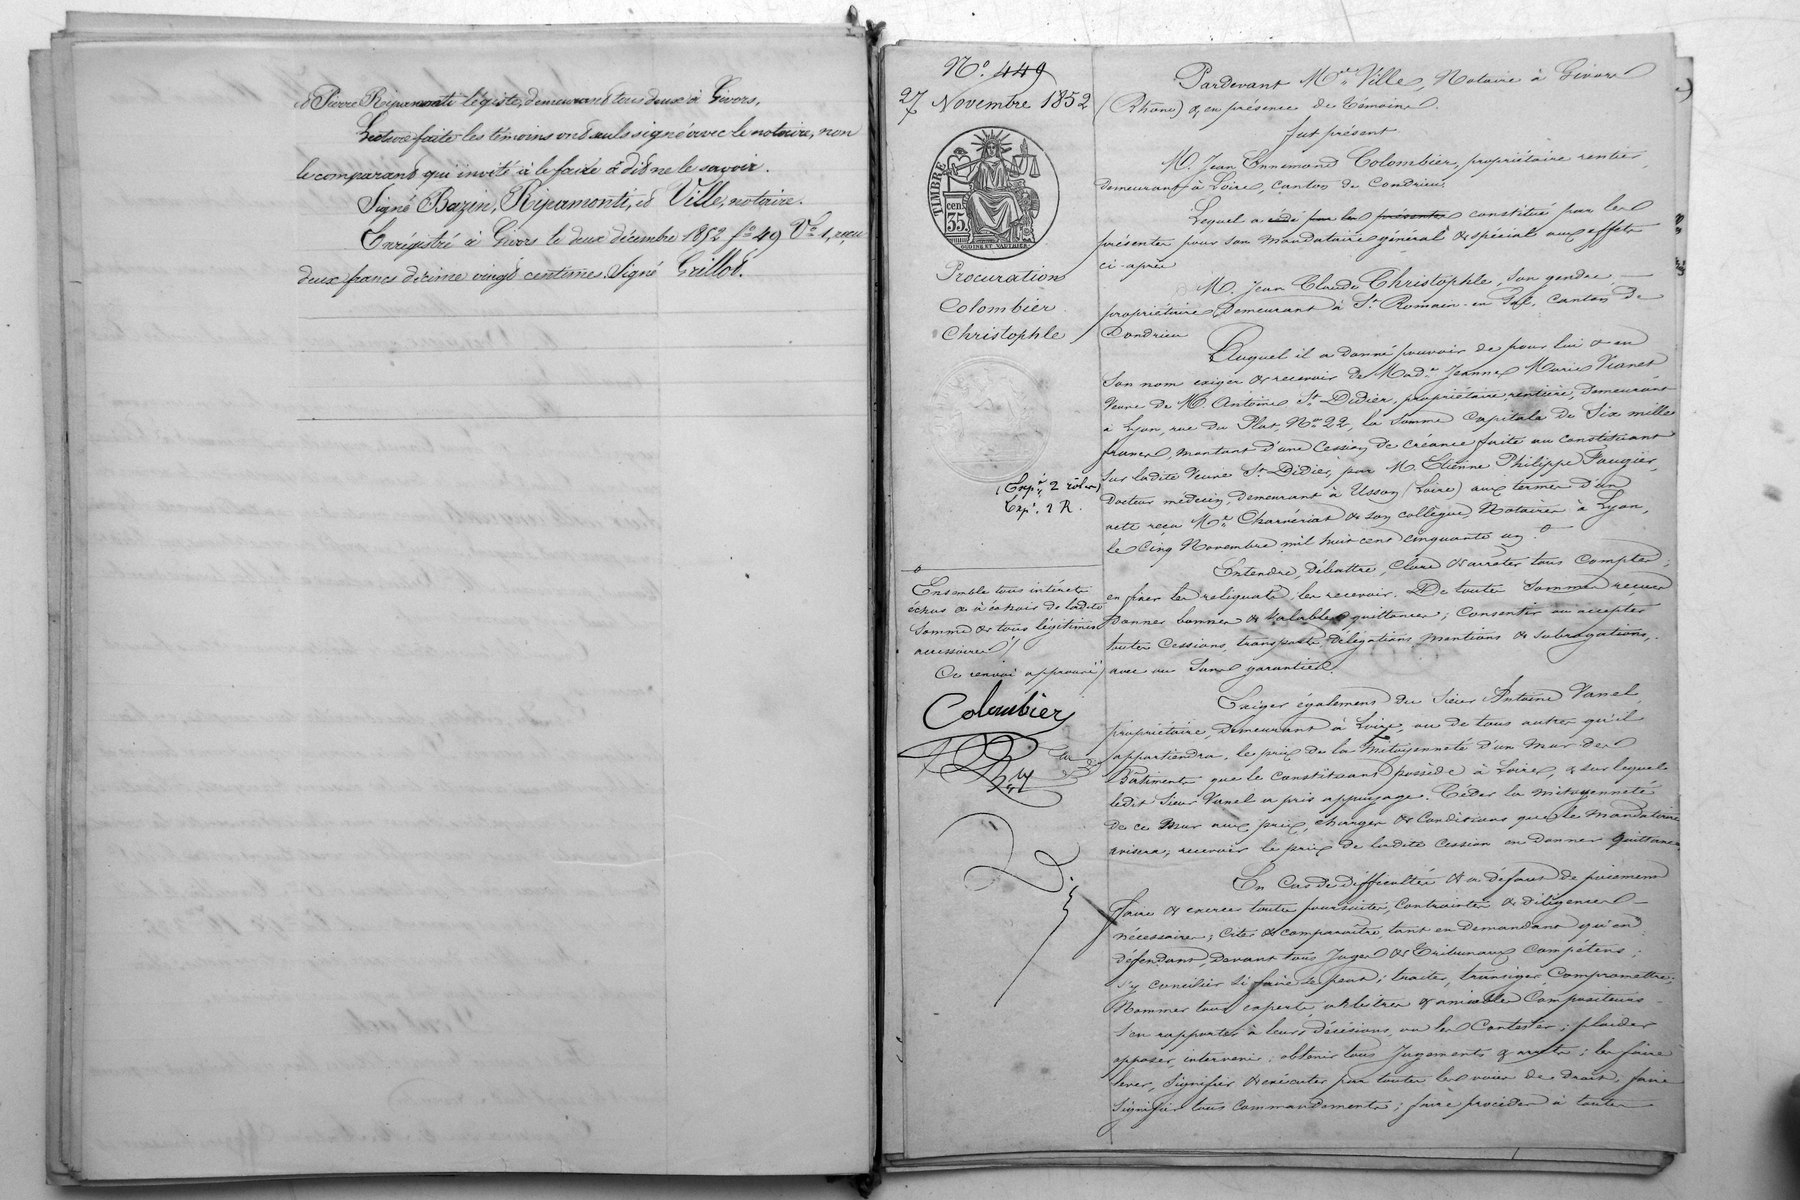 & Pierre Ripamonti légiste, demeurant tous deux à Givors.
Lecture faite les témoins ont seuls signé avec le notaire, non
le comparant qui invité à le faire a dit ne le savoir.
Signé Bazin, Ripamonti, & Ville, notaire.
Enrégistré à Givors le deux décembre 1852 fo 49 Vo 1, reçu
deux francs décime vingt centimes. Signé Grillot.
No. 449
27 Novembre 1852
TIMBRE
35 cen.
Procuration
Colombier
Christophle
Expon 2 rôles
Exp. 2 R.
Ensemble tous intérêts
échus & à échoir de ladite
Somme & tous légitimes
accessoires
Ce renvoi approuvé
Colombier
Pardevant Me Ville, Notaire à Givors
(Rhône) & en présence de témoins.
fut présent
M. Jean Ennemond Colombier, propriétaire rentier,
demeurant à Loire, canton de Condrieu.
Lequel a cédé par les présentes constitué par les
présentes pour son mandataire général & spécial aux effets
ci-après
M. Jean Claude Christophle, son gendre,
propriétaire, Demeurant à St Romain-en-Gal, canton de
Condrieu
Auquel il a donné pouvoir de pour lui & en
Son nom exiger & recevoir de Made Jeanne Marie Vianet
Veuve de M. Antoine St Didier, propriétaire rentière, demeurant
à Lyon, rue du Plat, No 22, la Somme Capitale de Six mille
francs, montant d'une Cession de créance faite au constituant
Sur ladite Veuve St Didier, par M. Etienne Philippe Faugier,
Docteur médecin, demeurant à Usson (Loire) aux termes d'un
acte reçu Me Charvériat & son collègue, Notaires à Lyon,
le Cinq Novembre mil huit cent cinquante un.
Entendre, Débattre, Clore & arrêter tous Comptes;
en fixer les reliquats, les recevoir. De toutes Sommes reçues
Donner bonnes & Valables quittances; Consentir ou accepter
toutes Cessions, transports, délégations, mentions & subrogations,
avec ou Sans garantie.
Exiger également du Sieur Antoine Vanel,
propriétaire, Demeurant à Loire, ou de tous autres qu'il
appartiendra, le prix de la Mitoyenneté d'un mur des
Bâtiments que le Constituant possède à Loire, & sur lequel
ledit Sieur Vanel a pris appuyage. Céder la mitoyenneté
de ce mur aux prix, charges & Conditions que le Mandataire
avisera; recevoir le prix de ladite Cession en Donner Quittance
En Cas de difficultés & a défaut de paiement
faire & exercer toutes poursuites, Contraintes & diligences
nécessaires; Citer & comparaître tant en demandant qu'en
défendant, Devant tous Juges & Tribunaux Compétens;
s'y concilier Si faire Se peut; traiter, transiger, Compromettre;
Nommer tous experts, arbitres & amiables Compositeurs
S'en rapporter à leurs Décisions ou les Contester; plaider
opposer, intervenir, obtenir tous Jugements & arrêts; les faire
lever, Signifier & exécuter par toutes les voies de Droit, faire
Signifier tous Commandements; faire procéder à toutes